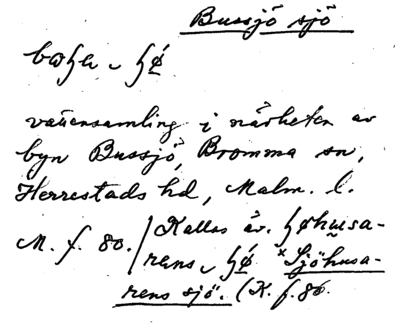 Bussjö sjö
vattensamling i närheten av
byn Bussjö, Bromma sn,
Herrestads hd, Malm. l.
M. f. 80. / Kallas äv.
rens ˣSjöhusa-
rens sjö. (K. f. 86.